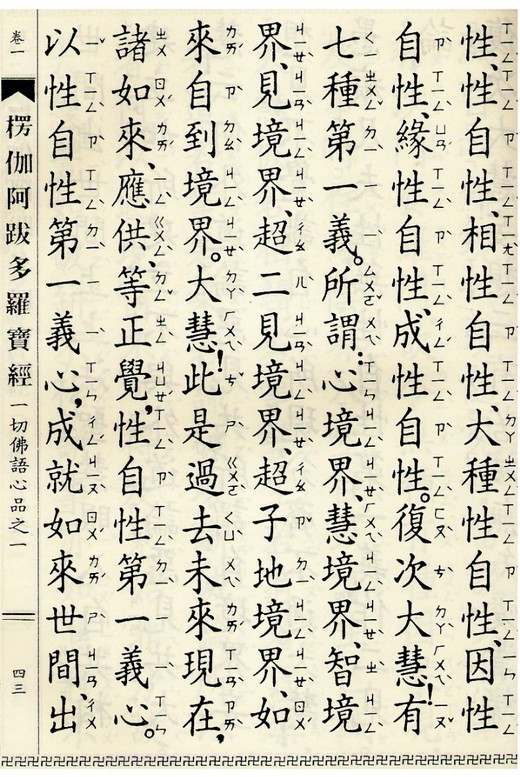 性、性自性、相性自性、大種性自性、因性
自性、緣性自性、成性自性。復次大慧！有
七種第一義。所謂：心境界、慧境界、智境
界、見境界、超二見境界、超子地境界、如
來自到境界。大慧！此是過去未來現在，
諸如來、應供、等正覺，性自性第一義心。
以性自性第一義心，成就如來世間、出
卷一
楞伽阿跋多羅寶經
一切佛語心品之一
四三